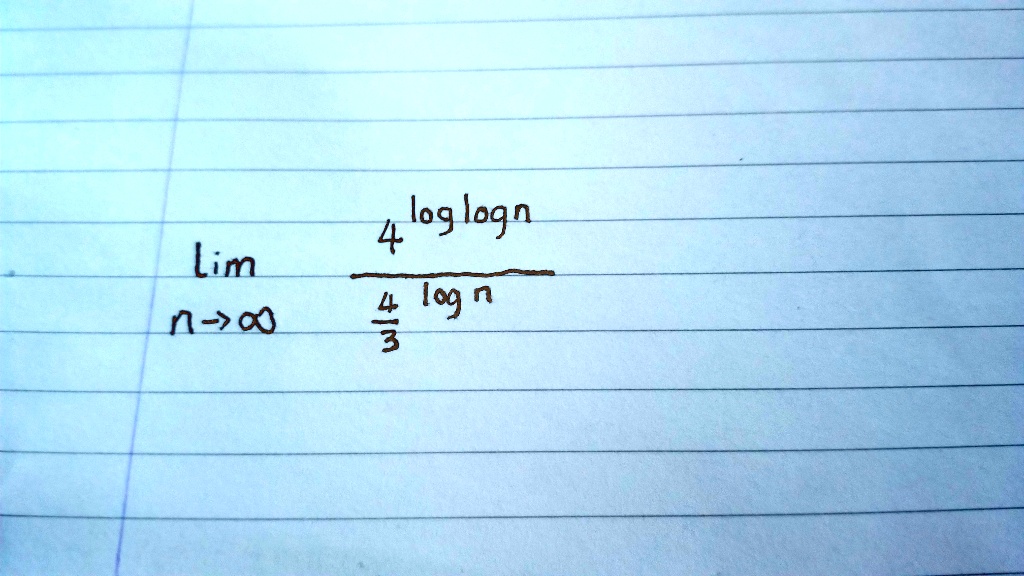 lim n→∞ 4^{log log n} / \frac{4}{3}^{log n}